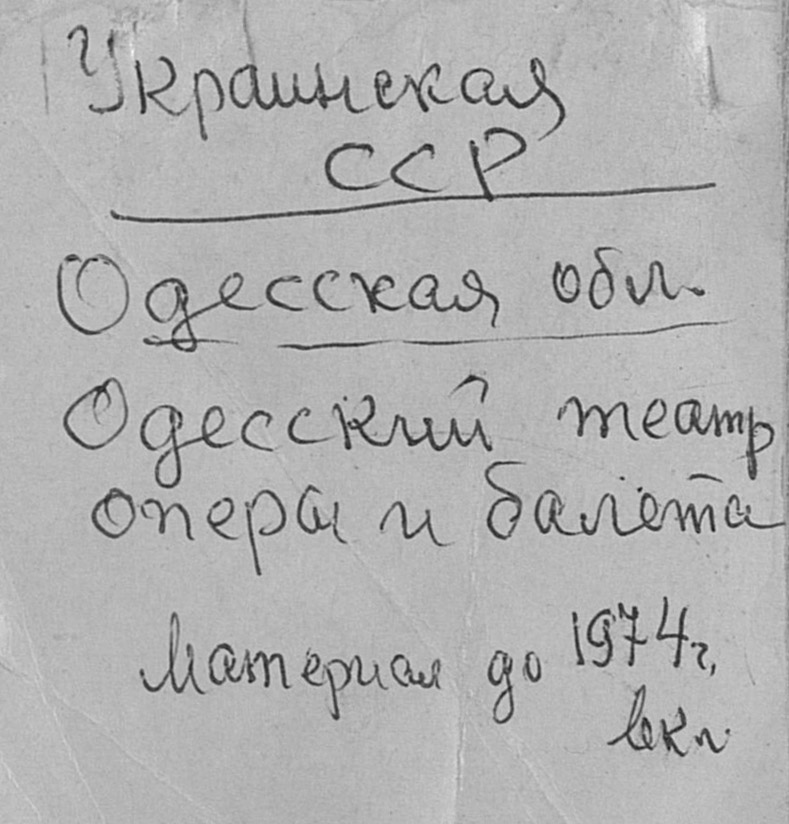 Украинская
ССР
Одесская обл.
Одесский театр
оперы и балета
Материал до 1974 г.
вкл